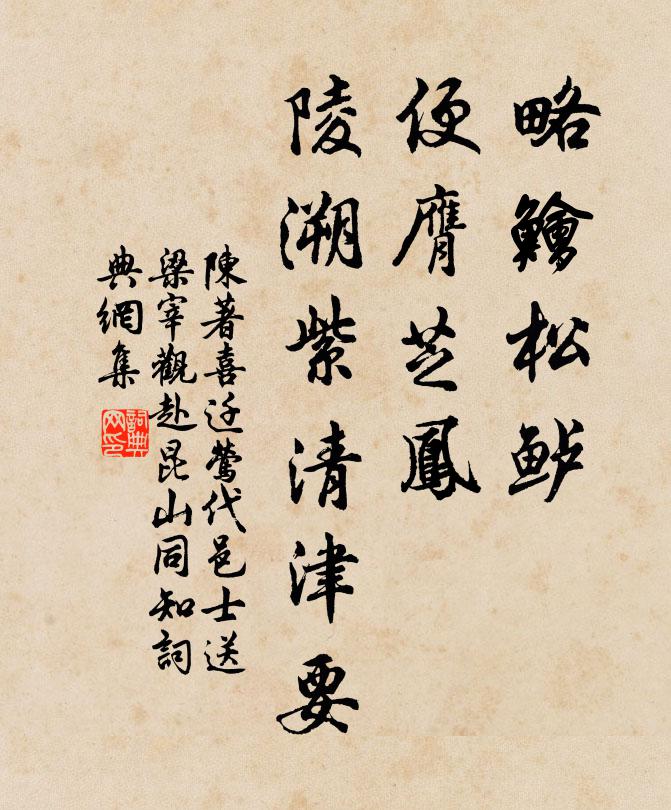 略鱠松鲈
便膺芝鳳
陵溯紫清津要
陳著喜迁鶯代邑士送
梁宰觀赴昆山同知詞
典網集
詞典网印